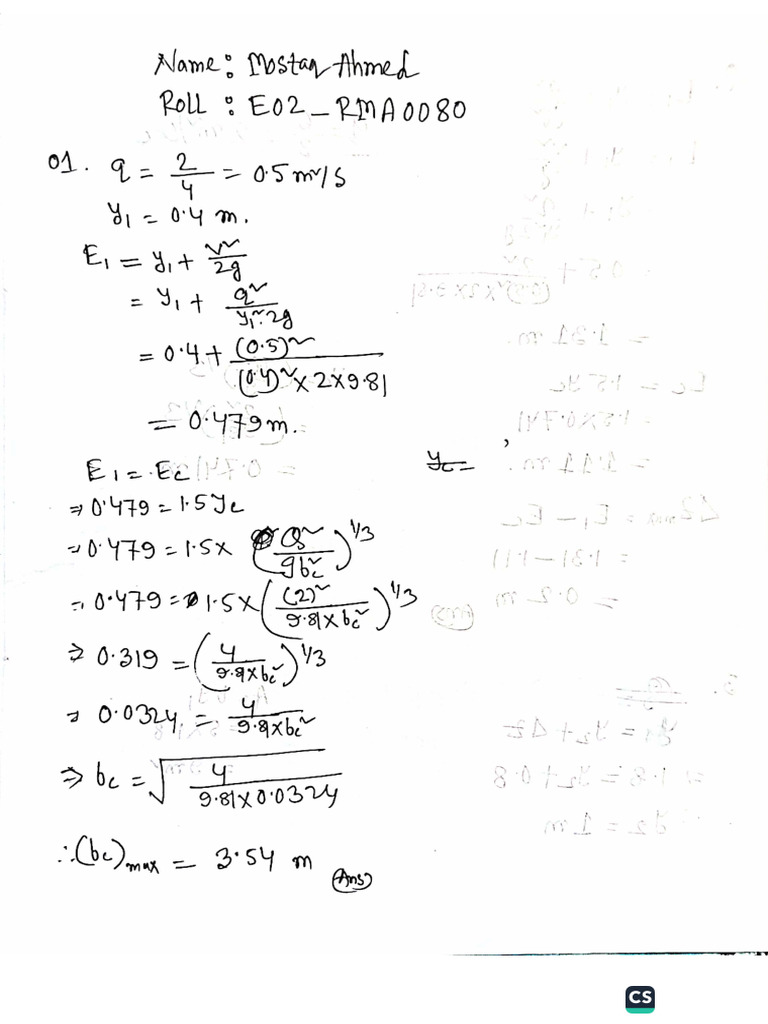 Name: Mostaq Ahmed
Roll : E02-RMA0080
01. q = 2/4 = 0.5 m²/s
y₁ = 0.4 m.
E₁ = y₁ + v²/2g
= y₁ + q²/y₁².2g
= 0.4 + (0.5)²/(0.4)² x 2 x 9.81
= 0.479 m.
E₁ = Ec
yc =
⇒ 0.479 = 1.5 yc
⇒ 0.479 = 1.5 x (Q²/gbc²)^1/3
⇒ 0.479 = 1.5 x ((2)²/9.81 x bc²)^1/3
⇒ 0.319 = (4/9.81 x bc²)^1/3
⇒ 0.0324 = 4/9.81 x bc²
⇒ bc = √(4/9.81 x 0.0324)
∴ (bc)max = 3.54 m
Ans
CS